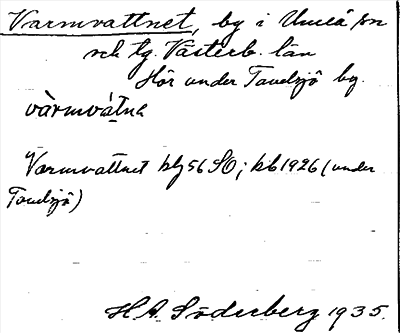 Varmvattnet, by i Umeå sn
och tg. Västerb. län
Hör under Tavelsjö by.
vàrmvátnɛ
Varmvattnet blj 56 SO; kb 1926 (under
Tavelsjö)
H. A. Söderberg 1935.